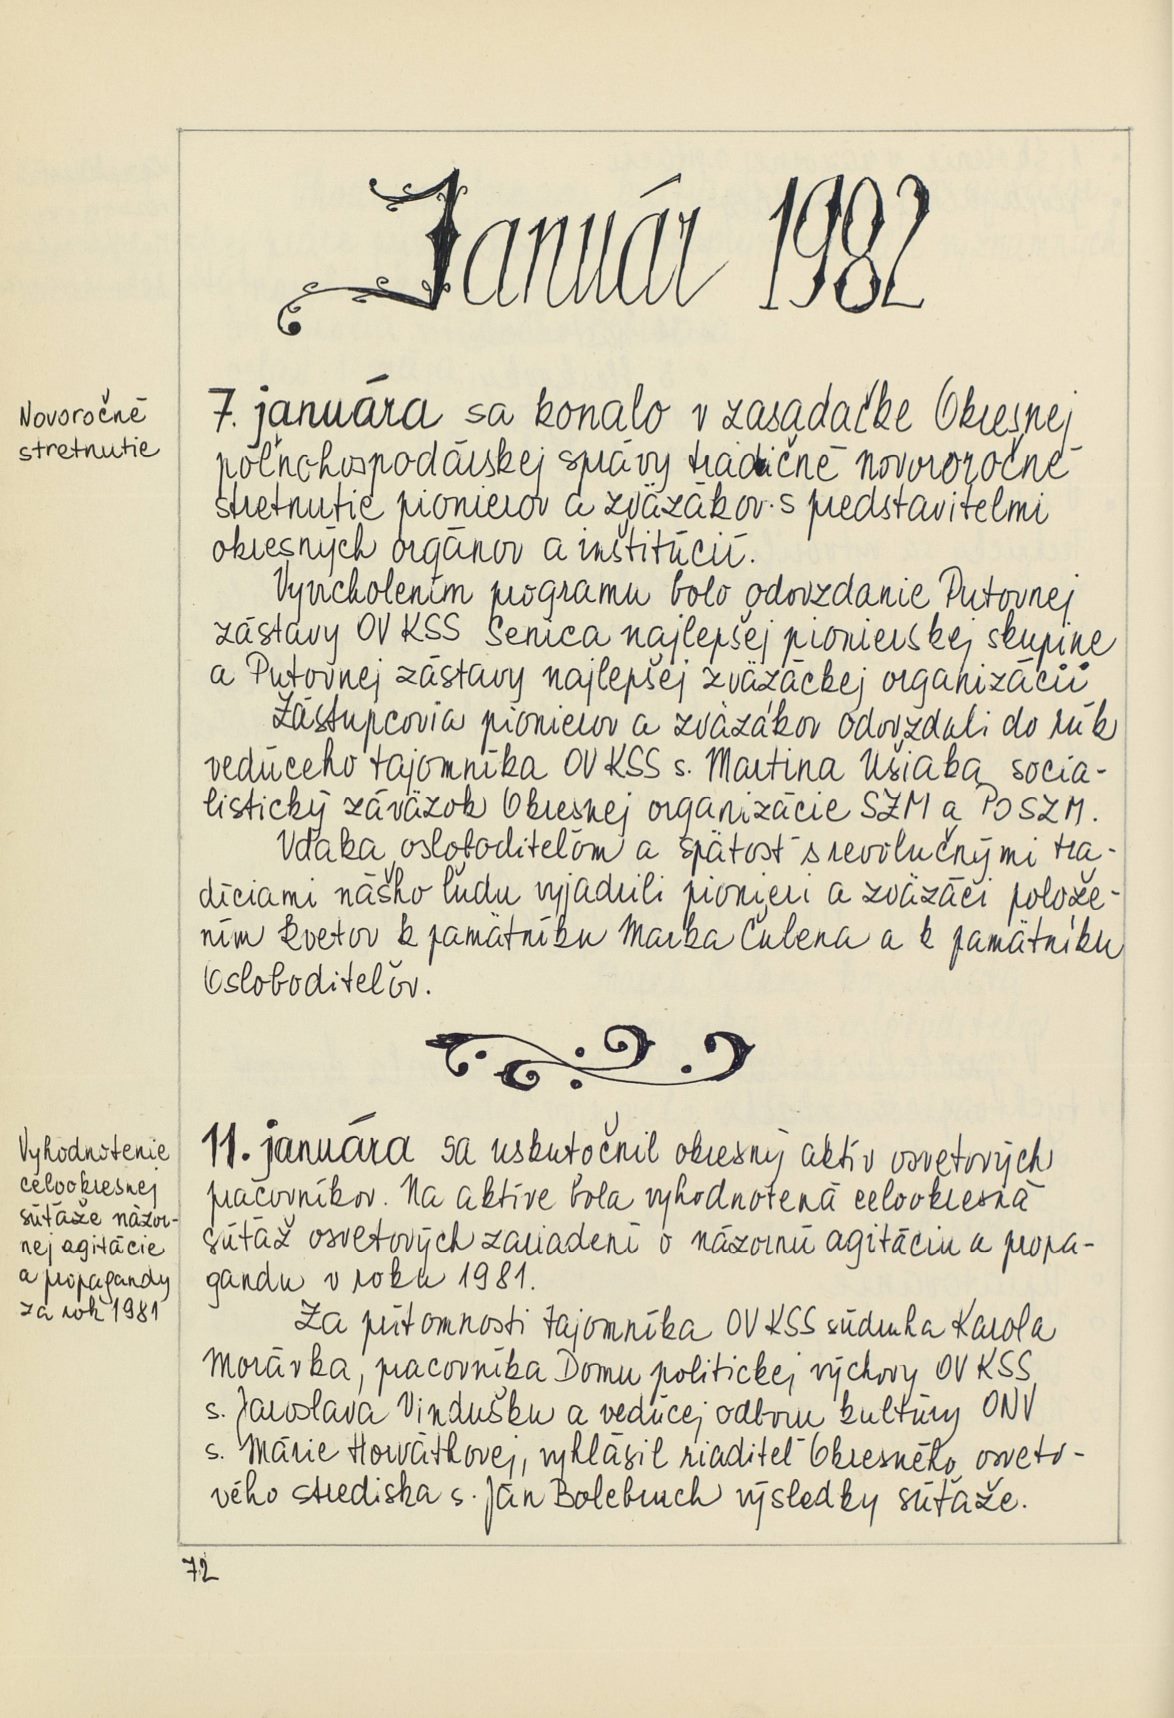 Január 1982
Novoročné
stretnutie
7. januára sa konalo v zasadačke Okresnej
poľnohospodárskej správy tradičné novoročné
stretnutie pionierov a zväzákov s predstaviteľmi
okresných orgánov a inštitúcií.
Vyvrcholením programu bolo odovzdanie Putovnej
zástavy OV KSS Senica najlepšej pionierskej skupine
a Putovnej zástavy najlepšej zväzáckej organizácii
Zástupcovia pionierov a zväzákov odovzdali do rúk
vedúceho tajomníka OV KSS s. Martina Ušiaka socia-
listický záväzok Okresnej organizácie SZM a PO SZM.
Vďaka osloboditeľom a spätosť s revolučnými tra-
díciami nášho ľudu vyjadrili pionieri a zväzáci polože-
ním kvetov k pamätníku Marka Čulena a k pamätníku
Osloboditeľov.
Vyhodnotenie
celookresnej
súťaže názor-
nej agitácie
a propagandy
za rok 1981
11. januára sa uskutočnil okresný aktív osvetových
pracovníkov. Na aktíve bola vyhodnotená celookresná
súťaž osvetových zariadení o názornú agitáciu a propa-
gandu v roku 1981.
Za prítomnosti tajomníka OV KSS súdruha Karola
Morávka, pracovníka Domu politickej výchovy OV KSS
s. Jaroslava Vindušku a vedúcej odboru kultúry ONV
s. Márie Horváthovej, vyhlásil riaditeľ Okresného osveto-
vého strediska s. Ján Bolebruch výsledky súťaže.
72